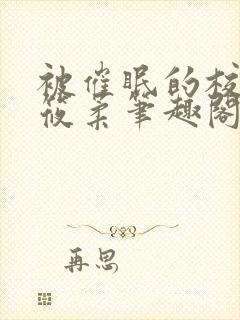 被催眠的校
筱柔笔趣阁
再思